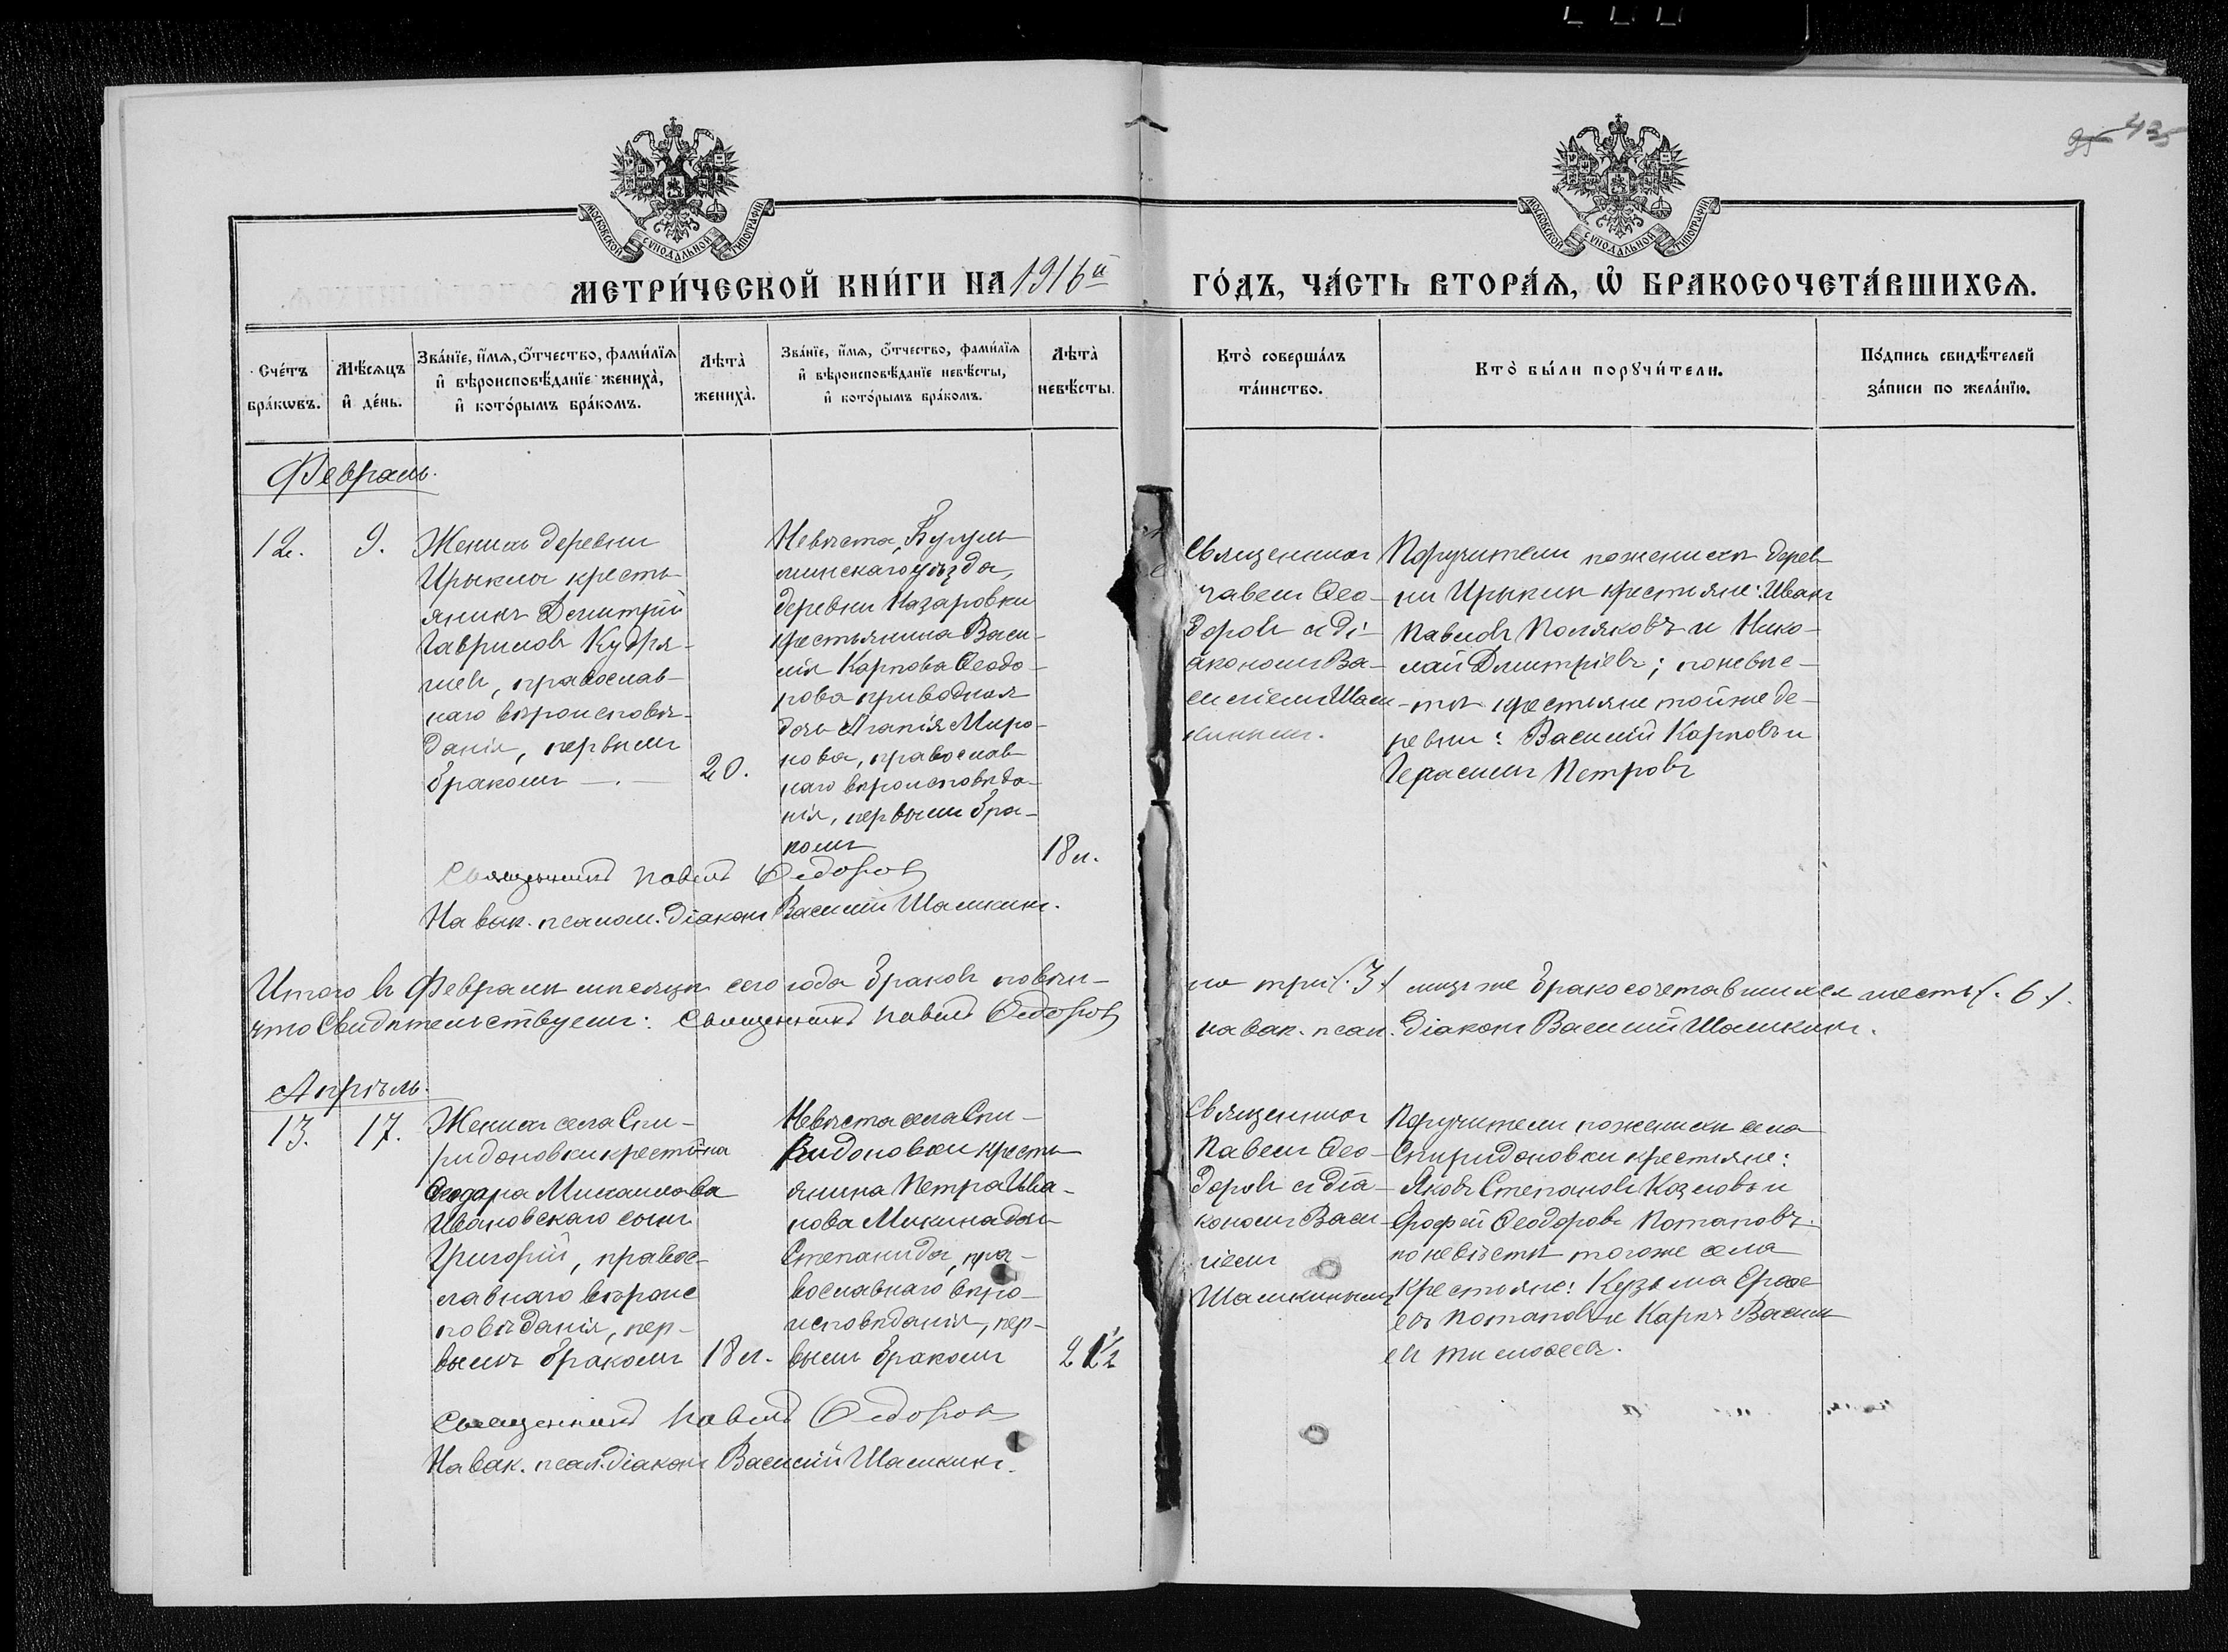 25 43
МОСКОВСКОЙ СУНОДАЛЬНОЙ ТИПОГРАФІИ
МОСКОВСКОЙ СУНОДАЛЬНОЙ ТИПОГРАФІИ
МЕТРИ́ЧЕСКОЙ КНИ́ГИ НА 1916й
ГО́ДЪ, ЧА́СТЬ ВТОРА́Ѧ, Ѡ҆ БРАКОСОЧЕТА́ВШИХСѦ.
Сче́тъ
бра́кωвъ.
Мѣ́сѧцъ
и҆ де́нь.
Зва́нїе, и҆́мѧ, ѻ҆́тчество, фами́лїѧ
и҆ вѣроисповѣ́данїе жениха̀,
и҆ кото́рымъ бра́комъ.
Лѣта̀
жениха̀.
Зва́нїе, и҆́мѧ, ѻ҆́тчество, фами́лїѧ
и҆ вѣроисповѣ́данїе невѣ́сты,
и҆ кото́рымъ бра́комъ.
Лѣта̀
невѣ́сты.
Кто̀ соверша́лъ
та́инство.
Кто̀ бы́ли порꙋчи́тели.
По́дпись свидѣ́телей
за́писи по жела́нїю.
Февраль.
12.
9.
Женихъ деревни
Ирыкла кресть-
янинъ Димитрій
Гавриловъ Кудря-
шевъ, православ-
наго вѣроисповѣ-
данія, первымъ
бракомъ —.—
20.
Невѣста, Бугуль
минскаго уѣзда,
деревни Назаровки
крестьянина Васи-
лія Карпова Ѳеодо-
рова приводная
дочь Агапія Миро-
нова, православ
наго вѣроисповѣда-
нія, первымъ бра-
комъ
18 л.
Священникъ
Павелъ Ѳео-
доровъ и ді-
акономъ Ва-
силіемъ Шаш-
кинымъ.
Поручители по женихѣ дерев
ни Ирыклы крестьяне: Иванъ
Павловъ Поляковъ и Нико-
лай Дмитріевъ; по невѣс-
тѣ крестьяне той же де-
ревни: Василій Карповъ и
Герасимъ Петровъ
Священникъ Павелъ Ѳедоровъ
На вак. псалом. діаконъ Василій Шашкинъ.
Итого въ Февралѣ мѣсяцѣ сего года браковъ повѣнча-
но три /.3./ лицъ же бракосочетавшихся шесть /.6./.
что свидѣтельствуемъ: Священникъ Павелъ Ѳедоровъ
на вак. псал. діаконъ Василій Шашкинъ.
Апрѣль.
13.
17.
Женихъ села Спи-
ридоновки крест-на
Ѳеодора Михаилова
Ивановскаго сынъ
Григорій, правос-
лавнаго вѣроис
повѣданія, пер-
вымъ бракомъ
18 л.
Невѣста села Спи-
ридоновки кресть
янина Петра Ива-
нова Микина дочь
Степанида, пра-
вославнаго вѣро-
исповѣданія, пер-
вымъ бракомъ
21½
Священникъ
Павелъ Ѳео-
доровъ и діа-
кономъ Васи-
ліемъ
Шашкинымъ
Поручители по женихѣ села
Спиридоновки крестьяне:
Яковъ Степановъ Козловъ и
Ерофей Ѳеодоровъ Потаповъ.
по невѣстѣ того же села
крестьяне: Кузьма Ерофе
евъ Потаповъ и Карпъ Василь
евъ Тимофеевъ.
Священникъ Павелъ Ѳедоровъ
На вак. псал. діаконъ Василій Шашкинъ.